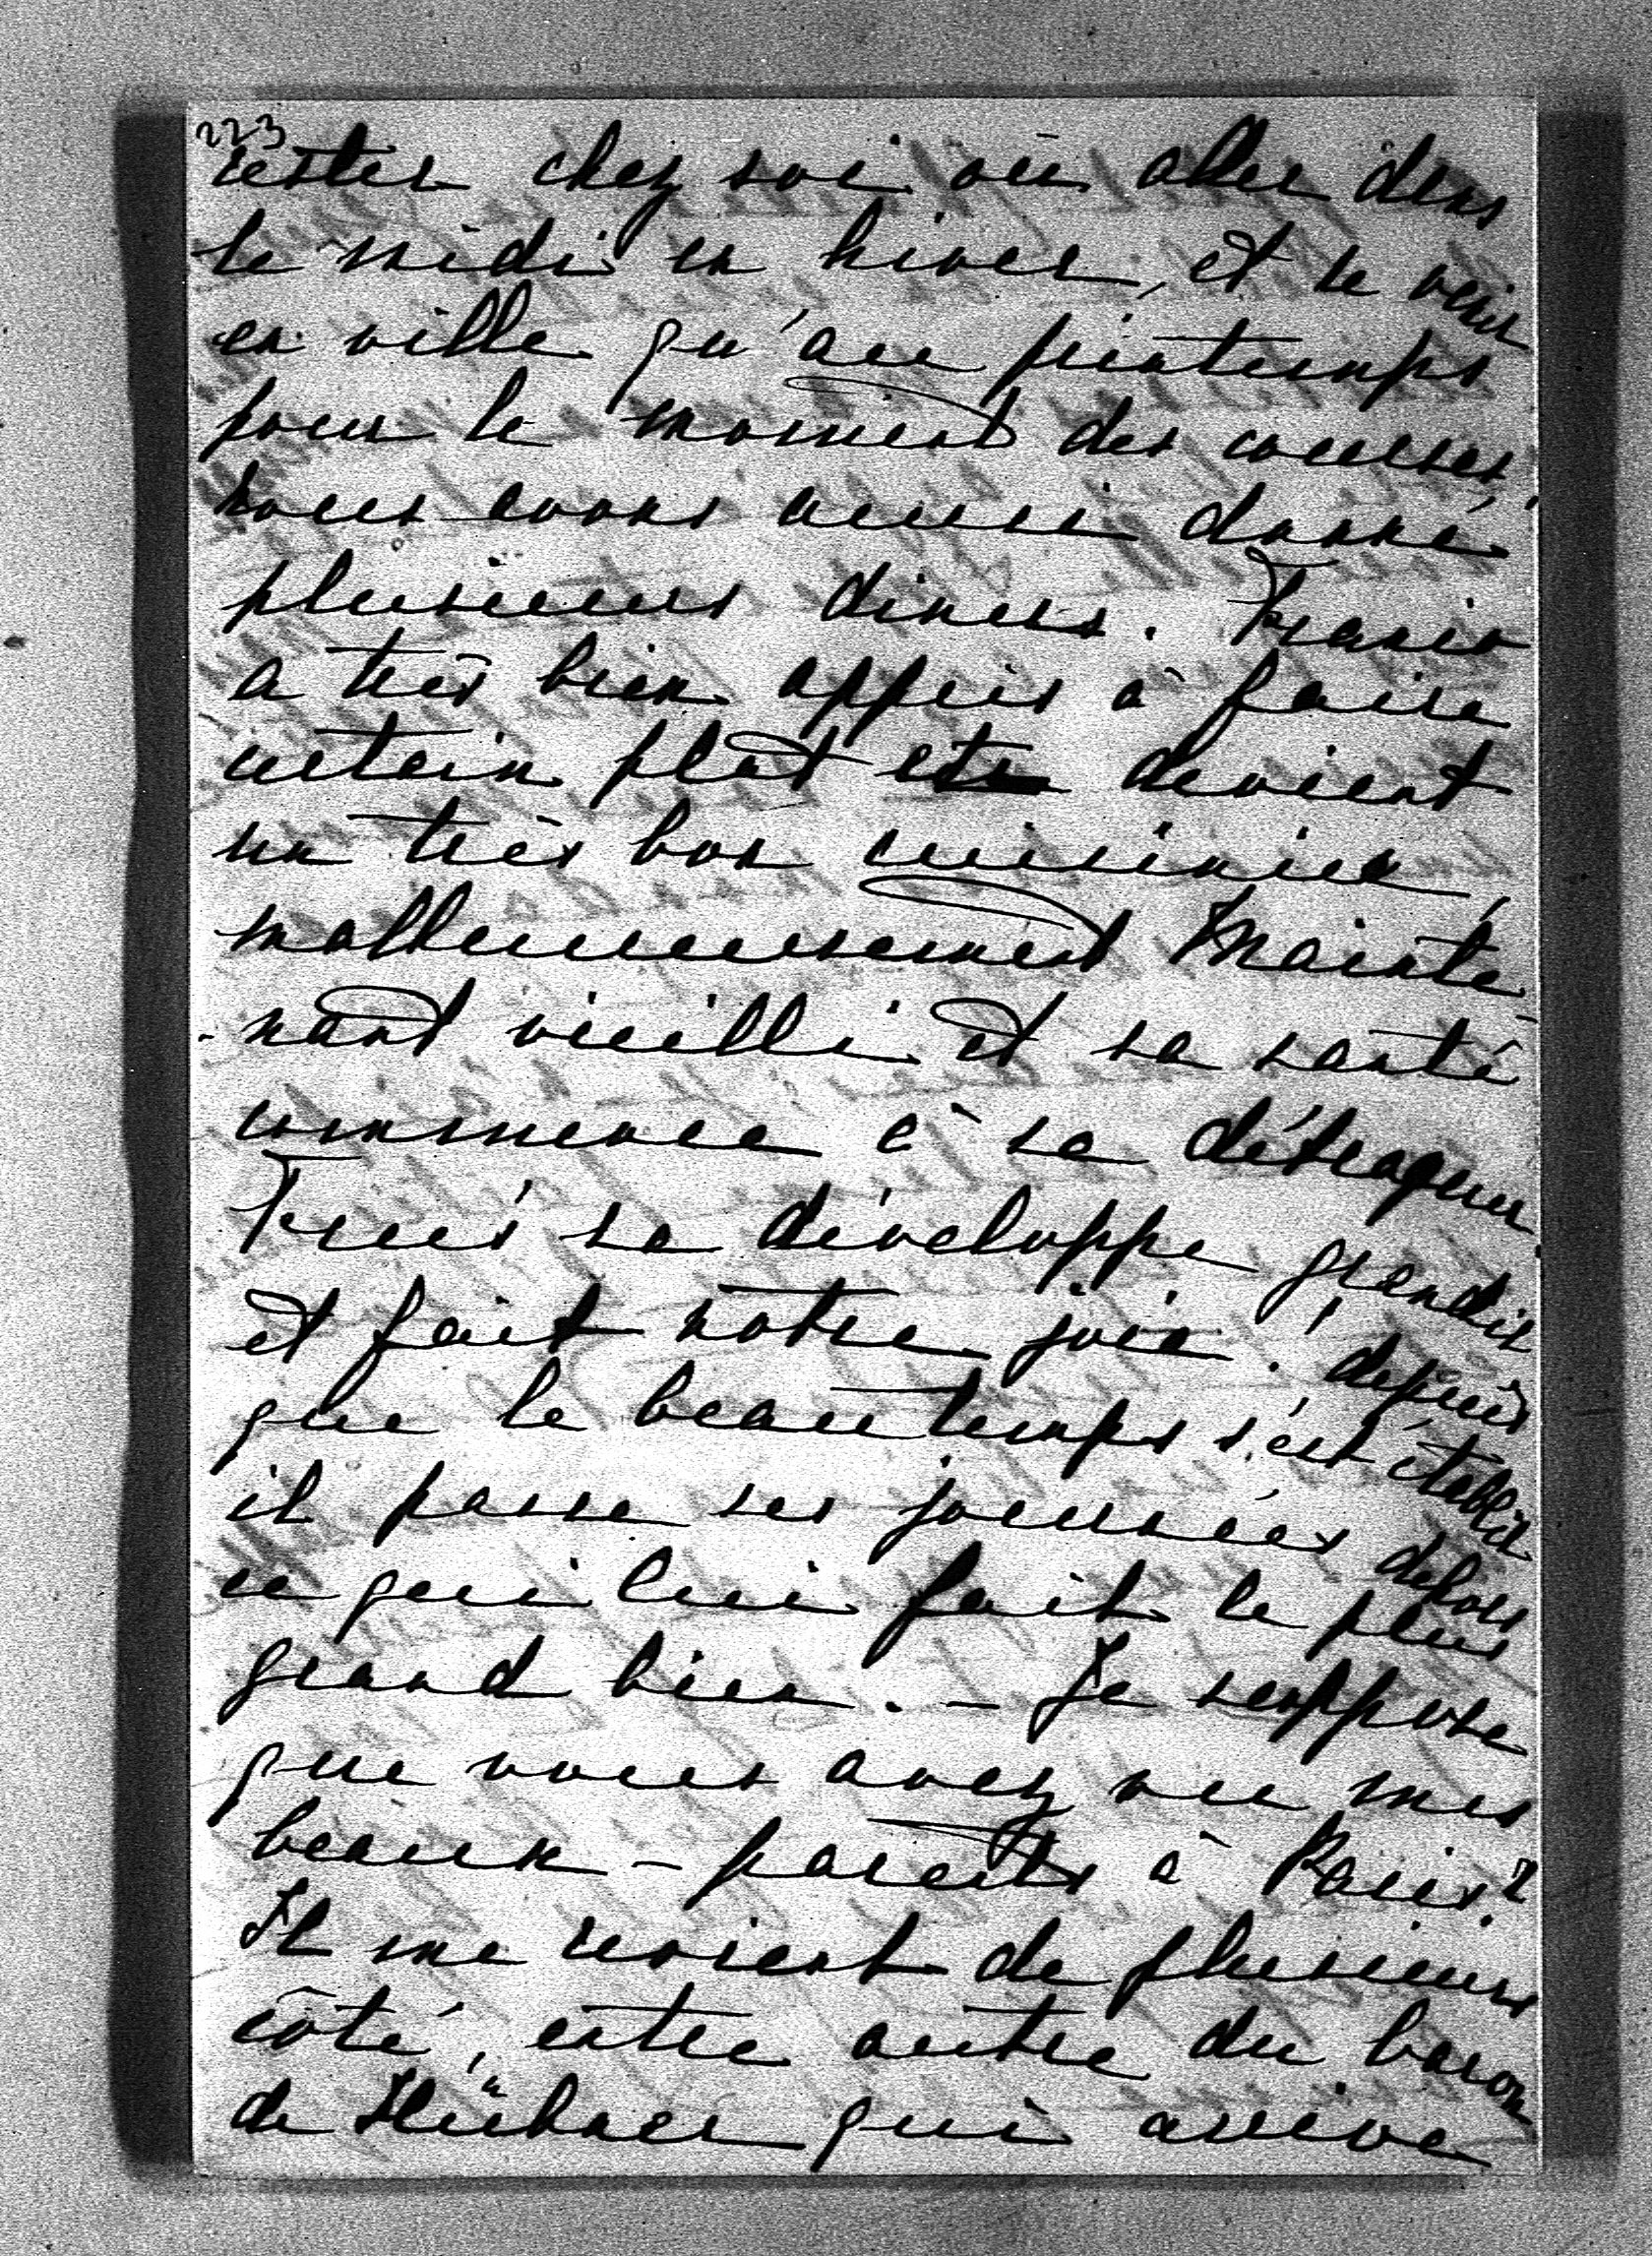 223
rester chez soi ou aller dans
le midi en hiver, et ne venir
en ville qu'au printemps
pour le moment des courses
nous avons aussi donné
plusieurs diners.
a très bien appris à faire
certain plat et devient
un très bon cuisinier,
malheureusement mainte
-nant vieilli et sa santé
commence à se détraquer.
se développe grandit
et fait notre joie! depuis
que le beau temps s'est établit
il passe ses journées dehors
ce qui lui fait le plus
grand bien. - Je suppose
que vous avez vu mes
beaux-parents à Paris?
Il me revient de plusieurs
côté, entre autre du baron
de Hübner qui arrive